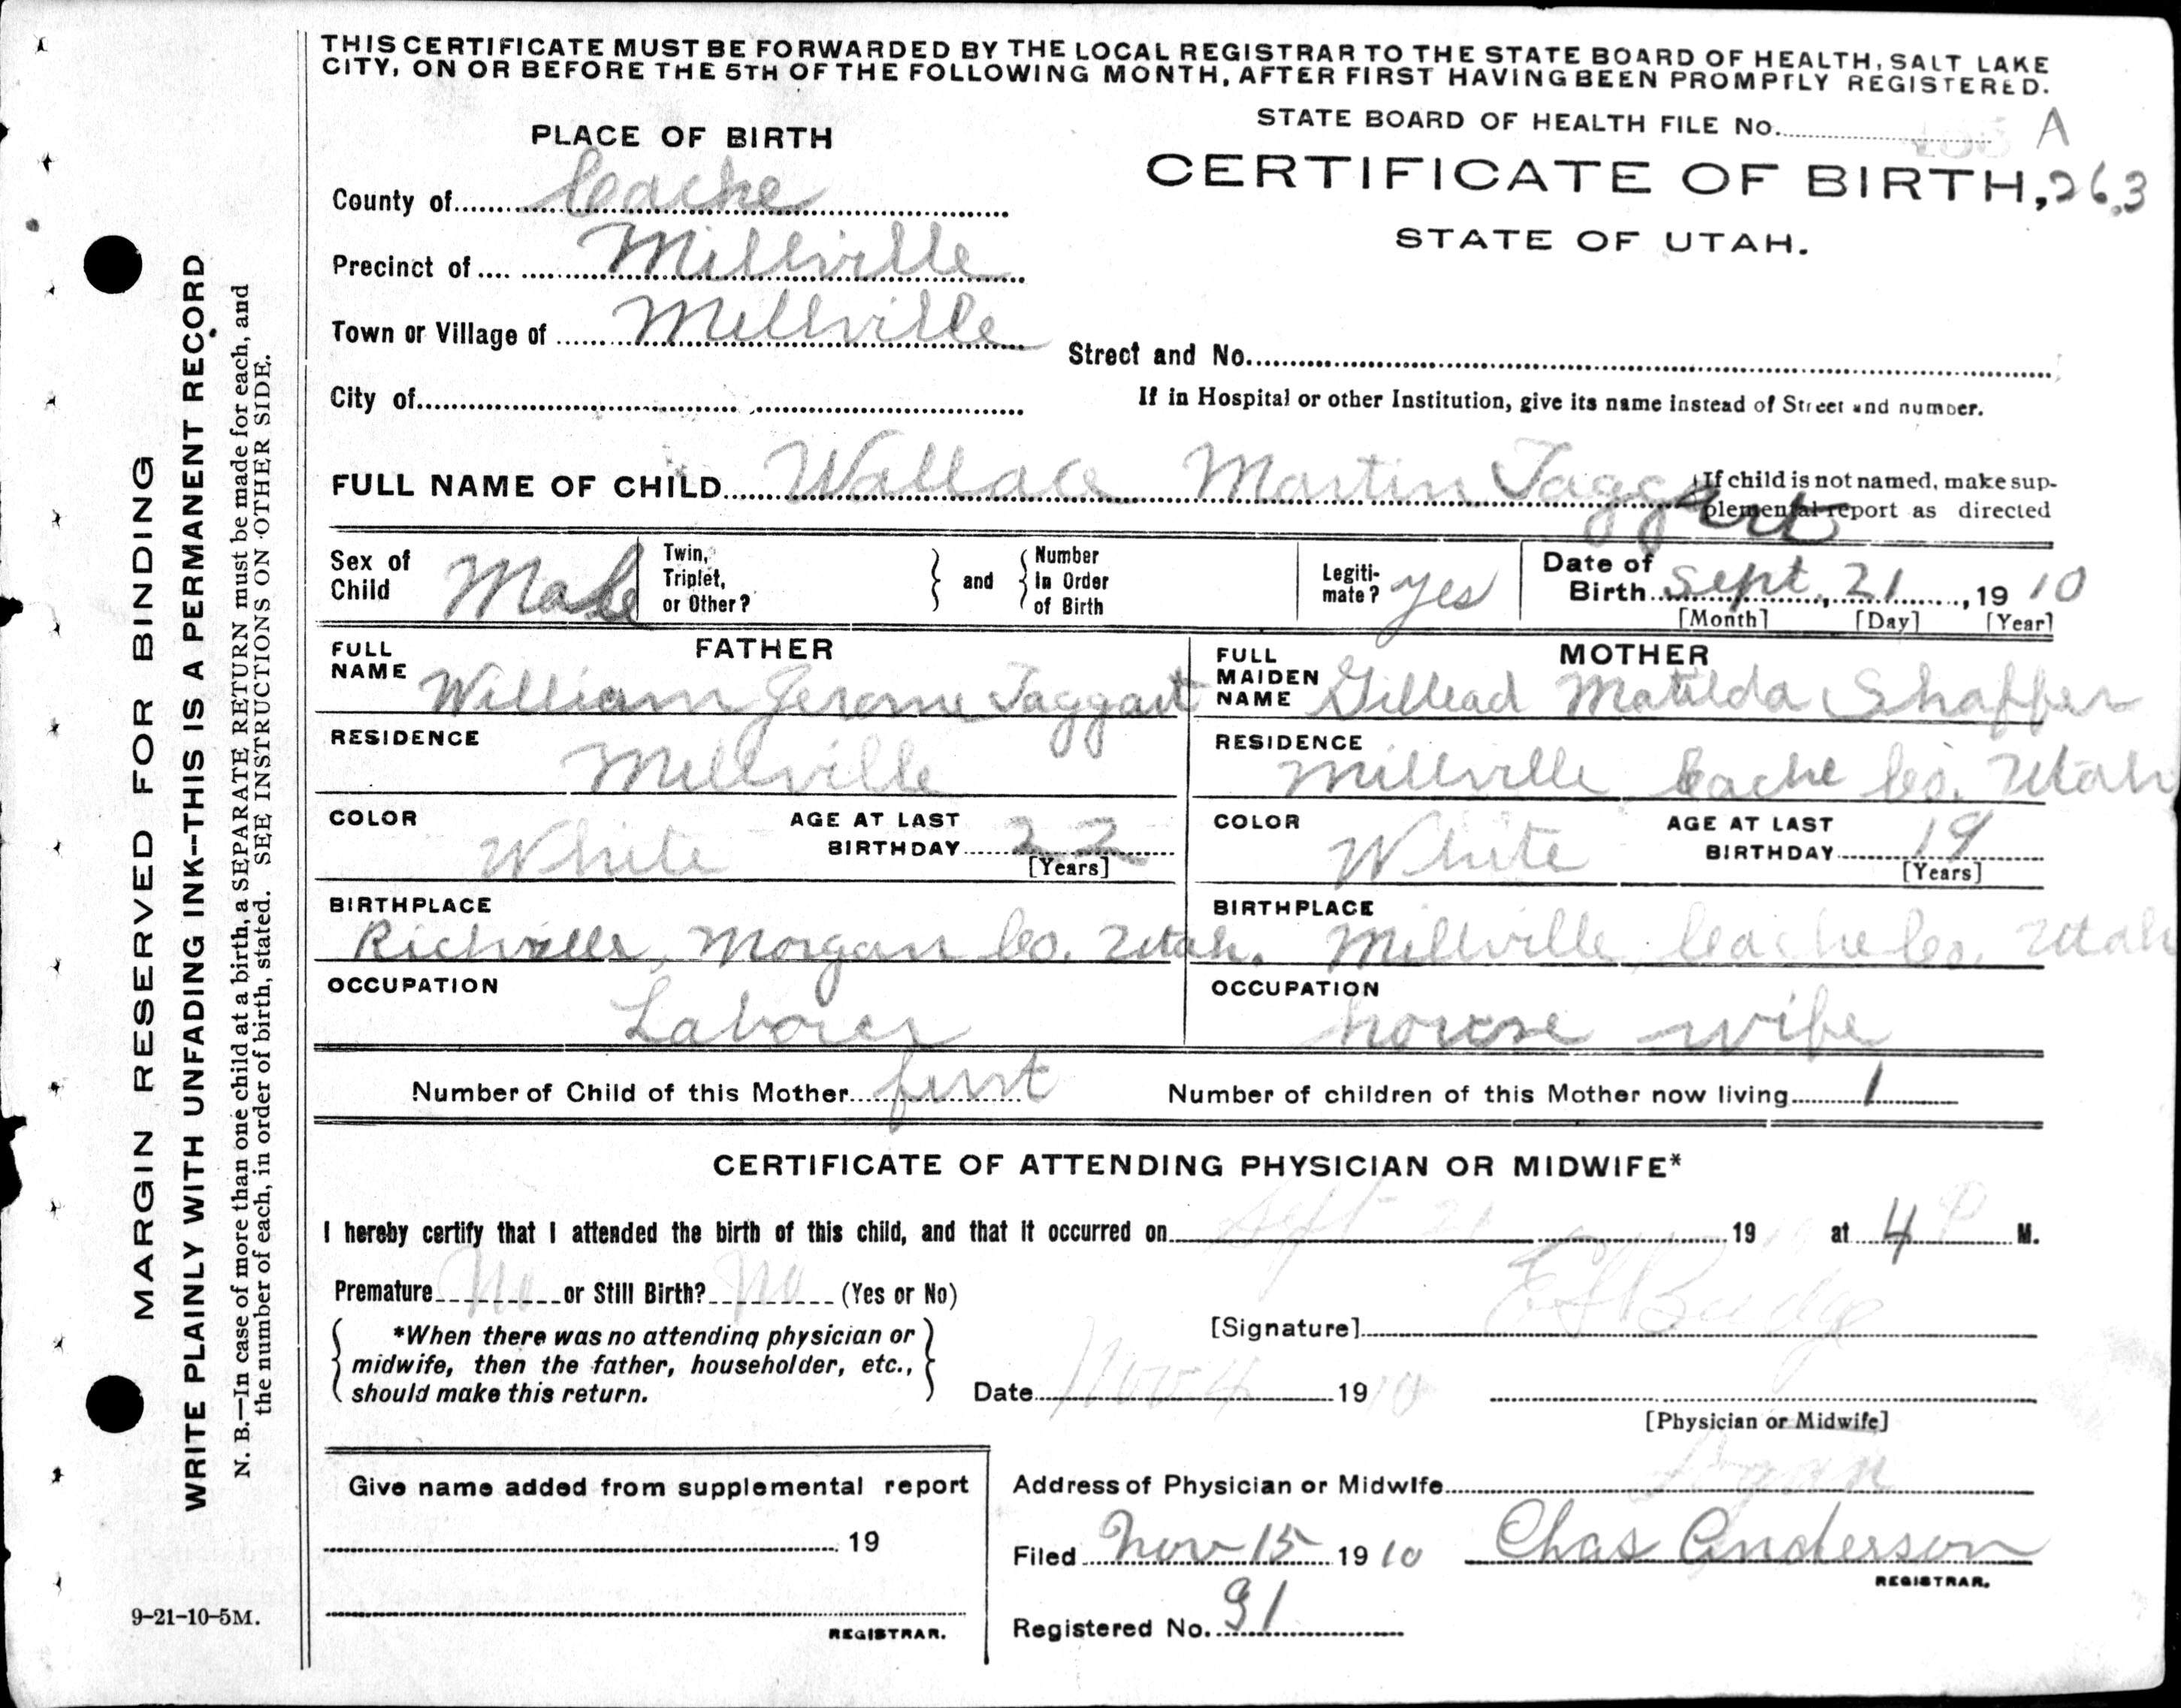 THIS CERTIFICATE MUST BE FORWARDED BY THE LOCAL REGISTRAR TO THE STATE BOARD OF HEALTH, SALT LAKE
CITY, ON OR BEFORE THE 5TH OF THE FOLLOWING MONTH, AFTER FIRST HAVING BEEN PROMPTLY REGISTERED.
STATE BOARD OF HEALTH FILE No. A
PLACE OF BIRTH
CERTIFICATE OF BIRTH, 263
STATE OF UTAH.
County of Cache
Precinct of Millville
Town or Village of Millville
Street and No.
City of
If in Hospital or other Institution, give its name instead of Street and number.
FULL NAME OF CHILD Wallace Martin Taggart
If child is not named, make sup-
plemental report as directed
Sex of Child Male
Twin, Triplet, or Other?
and
Number in Order of Birth
Legiti-mate? yes
Date of Birth Sept. 21, 1910
[Month] [Day] [Year]
FATHER
FULL NAME William Jerome Taggart
RESIDENCE Millville
COLOR White
AGE AT LAST BIRTHDAY 22
[Years]
BIRTHPLACE
Richville, Morgan Co. Utah.
OCCUPATION
Laborer
MOTHER
FULL MAIDEN NAME Gillead Matilda Shaffer
RESIDENCE
Millville Cache Co. Utah
COLOR White
AGE AT LAST BIRTHDAY 19
[Years]
BIRTHPLACE
Millville, Cache Co. Utah
OCCUPATION
house wife
Number of Child of this Mother first
Number of children of this Mother now living 1
CERTIFICATE OF ATTENDING PHYSICIAN OR MIDWIFE*
I hereby certify that I attended the birth of this child, and that it occurred on Sept 21 19 at 4 P M.
Premature No or Still Birth? No (Yes or No)
*When there was no attending physician or
midwife, then the father, householder, etc.,
should make this return.
[Signature] Budge
Date Nov 4 1910
[Physician or Midwife]
Give name added from supplemental report
19
REGISTRAR.
Address of Physician or Midwife Logan
Filed Nov 15 1910 Chas Anderson
REGISTRAR.
Registered No. 91
MARGIN RESERVED FOR BINDING
WRITE PLAINLY WITH UNFADING INK--THIS IS A PERMANENT RECORD
N. B.—In case of more than one child at a birth, a SEPARATE RETURN must be made for each, and
the number of each, in order of birth, stated. SEE INSTRUCTIONS ON OTHER SIDE.
9-21-10-5M.